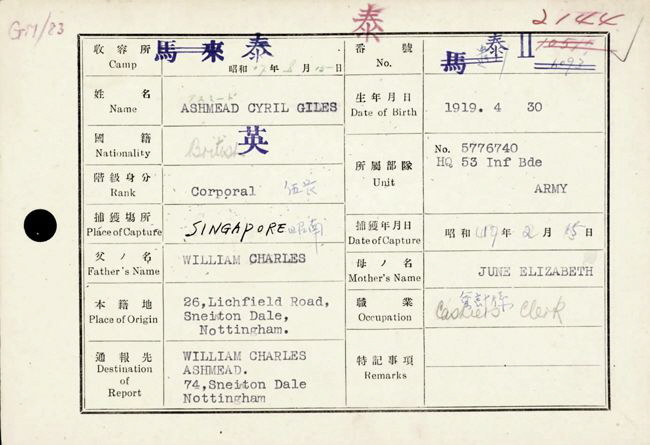 泰
2144
GM/83
收容所 馬來 泰
Camp 昭和 17年 8月 15日
番號 馬 泰 II
No.
姓名
Name ASHMEAD CYRIL GILES
生年月日 1919. 4 30
Date of Birth
國籍 英
Nationality British
所屬部隊 No. 5776740
Unit HQ 53 Inf Bde
ARMY
階級身分 Corporal 伍長
Rank
捕獲場所 SINGAPORE 昭南
Place of Capture
捕獲年月日 昭和 17年 2月 15日
Date of Capture
父ノ名 WILLIAM CHARLES
Father's Name
母ノ名 JUNE ELIZABETH
Mother's Name
本籍地 26,Lichfield Road,
Place of Origin Sneiton Dale,
Nottingham.
職業 會計係
Occupation Cashiers Clerk
通報先 WILLIAM CHARLES
Destination ASHMEAD.
of 74,Sneiton Dale
Report Nottingham
特記事項
Remarks